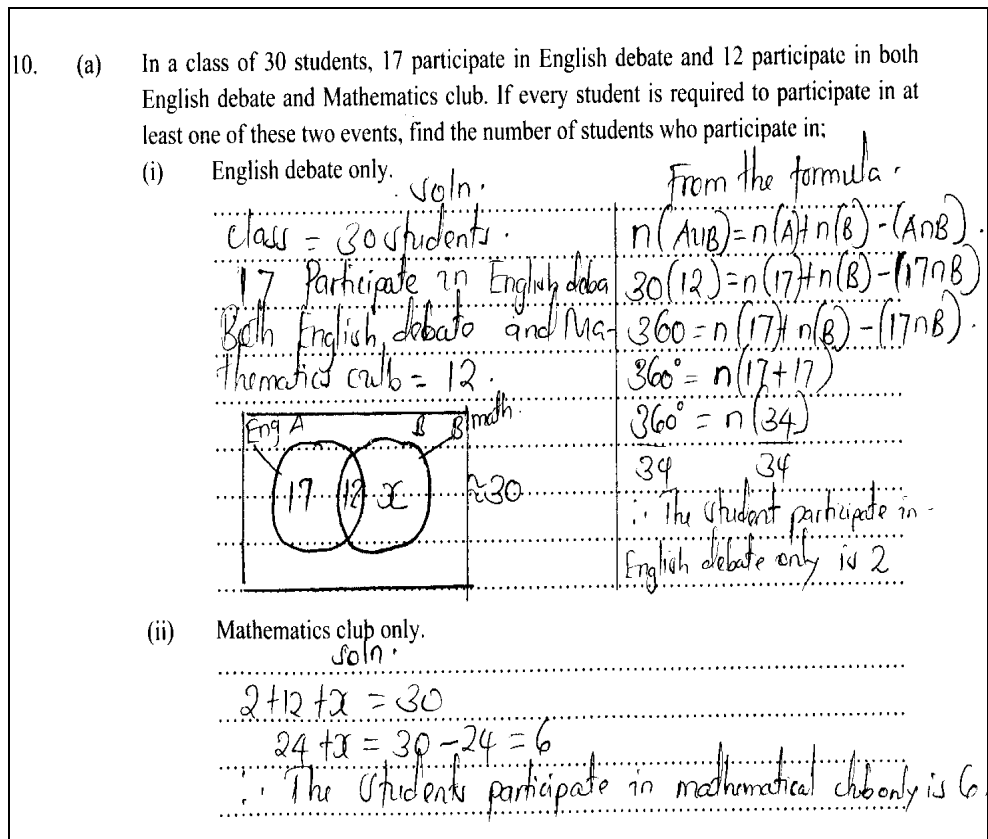 10. (a) In a class of 30 students, 17 participate in English debate and 12 participate in both
English debate and Mathematics club. If every student is required to participate in at
least one of these two events, find the number of students who participate in;
(i) English debate only.
soln.
class = 30 students.
17 Participate in English deba
Both English debate and Ma-
thematics club = 12.
Eng A B B math.
17 12 x ≈30
From the formula.
n(AUB)=n(A)+n(B)-(AnB).
30(12)=n(17)+n(B)-(17nB)
360=n(17)+n(B)-(17nB).
360°=n(17+17)
360°=n(34)
34 34
∴ The student participate in -
English debate only is 2
(ii) Mathematics club only.
soln.
2+12+x=30
24+x=30-24=6
∴ The Students participate in mathematical clubonly is 6.